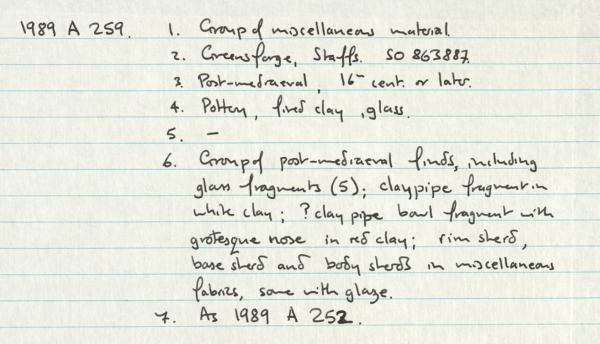 1989 A 259. 1. Group of miscellaneous material.
2. Greensforge, Staffs. SO 863887.
3. Post-mediaeval, 16- cent. or later.
4. Pottery, fired clay, glass.
5. —
6. Group of post-mediaeval finds, including
glass fragments (5); claypipe fragment in
white clay; ?clay pipe bowl fragment with
grotesque nose in red clay; rim sherd,
base sherd and body sherds in miscellaneous
fabrics, some with glaze.
7. As 1989 A 252.